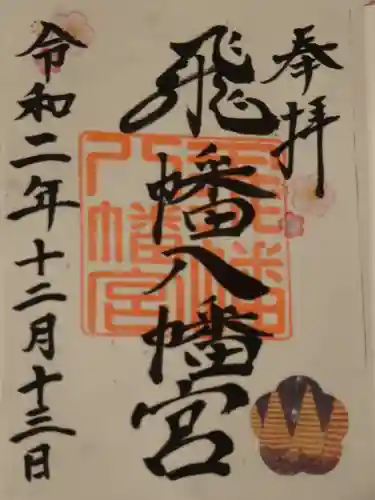 奉拝
飛幡八幡宮
令和二年十二月十三日
飛幡
八幡宮